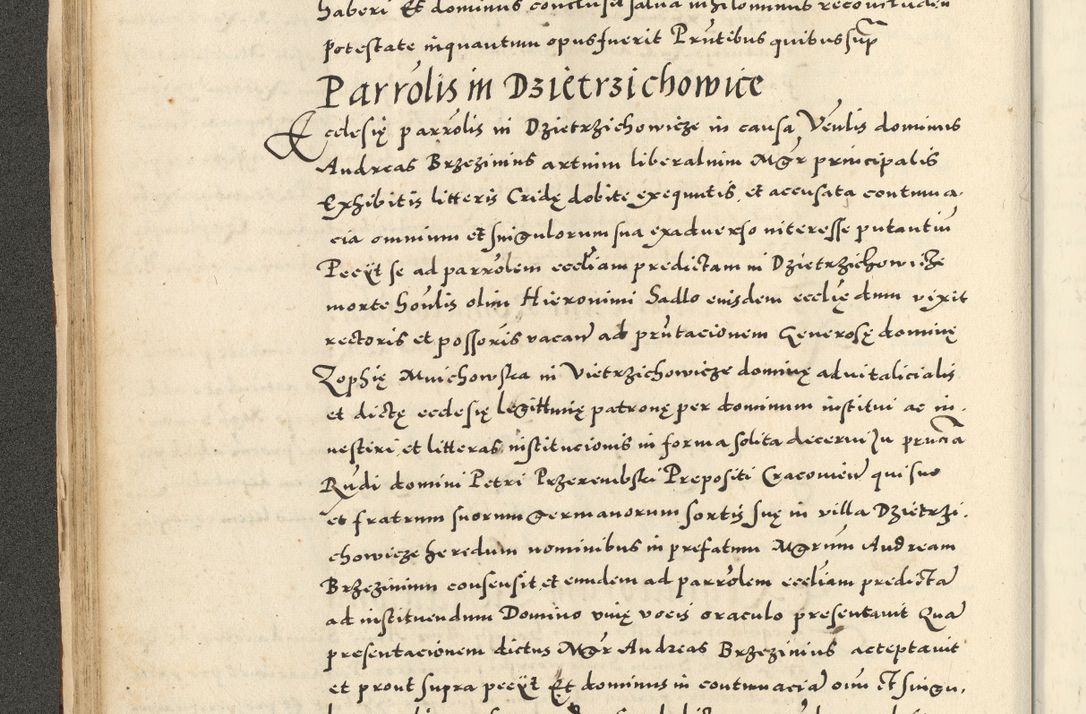 haberi Et dominus conclusit salua nihilominus
potestate inquantum opus fuerit Prntibus quibus supra
Parrolis in Dzietrzichowice
Ecclesię parrolis in Dzietrzichowicze in causa Venlis dominus
Andreas Brzezinius artium liberalium Mgr principalis
Exhibitis litteris Cridę debite exequutis, et accusata contuma-
cia omnium et singulorum sua ex aduerso interesse putantium
Peciit se ad parrolem eccliam predictam in Dzietrzichowicze
morte honlis olim Hieronimi Sadlo eiusdem ecclię dum vixit
rectoris et possoris vacan ad prntacionem Generosę dominę
Zophię Mnichowska in Vietrzichowicze dominę aduitalicialis
et dictę ecclesię legittimę patronę per dominum institui ac in-
uestiri, et litteras institucionis in forma solita decerni In prncia
Rndi domini Petri Przerembski Prepositi Cracouien qui suo
et fratrum suorum germanorum sortis suę in villa Dzietrzi-
chowicze heredum nominibus in prefatum Mgrum Andream
Brzezinium consensit, et eundem ad parrolem eccliam predictam
ad instituendum Domino viuę vocis oraculo presentauit Quam
presentacionem dictus Mgr Andreas Brzezinius acceptauit
et prout supra peciit Et dominus in contumaciam oium et singu-